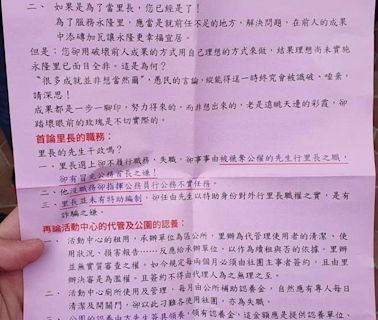 二、 如果是為了當里長，您已經是了！
為了服務永隆里，應當是就前任不足的地方，解決問題，在前人的成果
中添磚加瓦讓永隆更幸福宜居。
但是：您卻用破壞前人成果的方式用自己理想的方式來做，結果理想尚未實施
永隆里已面目全非，這是為何？
"很多成就並非想當然爾"愚民的言論，縱能得逞一時終究會被識破、唾棄，
請深思！
成果都是一步一腳印，努力得來的，而非想出來的，老是遠眺天邊的彩霞，卻
踏壞眼前的玫瑰是不切實際的。
首論里長的職務：
里長的先生干政嗎？
一、里長選上卻不履行職務，失職，卻事事由被褫奪公權的先生行里長之職，
卻有冒充公務首長之嫌！
二、他沒職務卻指揮公務員行公務不實任務。
三、里長並未有特助編制，卻任由先生以特助身份對外行里長職權之實，是有
詐騙之嫌。
再論活動中心的代管及公園的認養：
一、 活動中心的租用，承辦單位為區公所，里辦為代管理使用者的清潔、使
用狀況、損害報告……反應給承辦單位，以作為續租與否的依據。里辦
並無實質審查之權。如今規定每個月必須由社團主事者簽約，且由里
辦決審是為濫權。且簽約不得由代理人為之無理之至。
二、 活動中心廁所使用及管理，每月由公所補助基金，自然應有專人每日
清潔及開關門，卻以此刁難各使用社團，亦為失職。